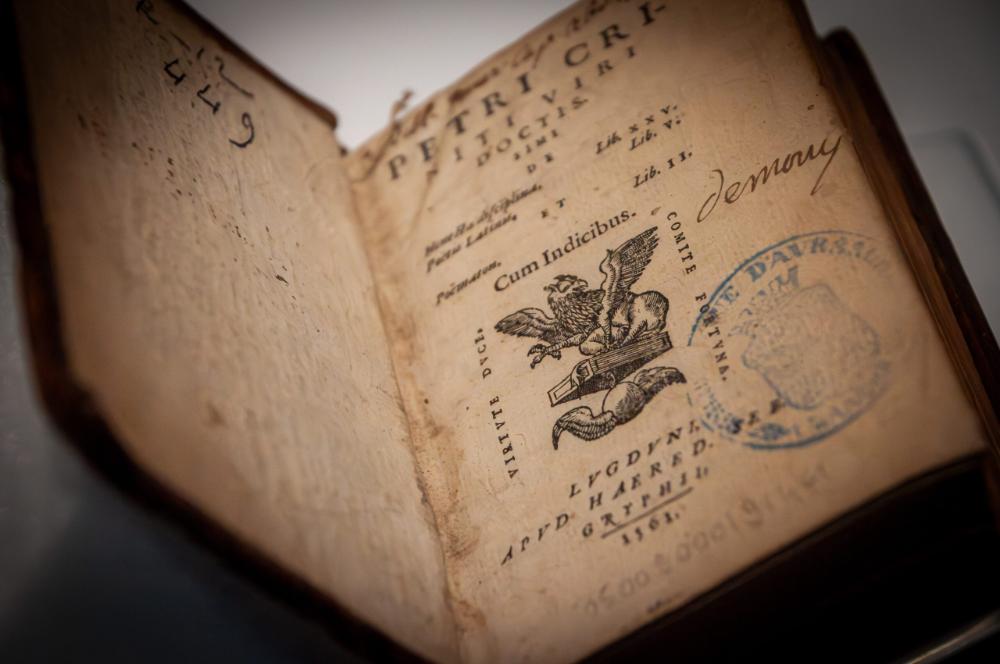 R-12
449
PETRI CRI-
NITI VIRI
DOCTIS-
SIMI
DE
Honesta disciplina, Lib. XXV.
Poetis Latinis, Lib. V.
ET
Poëmaton, Lib. II.
Cum Indicibus.
demouy
VIRTVTE DVCE,
COMITE FORTVNA.
D'AVR
LVGDVNI,
APVD HAERED. SEB.
GRYPHII,
1561.